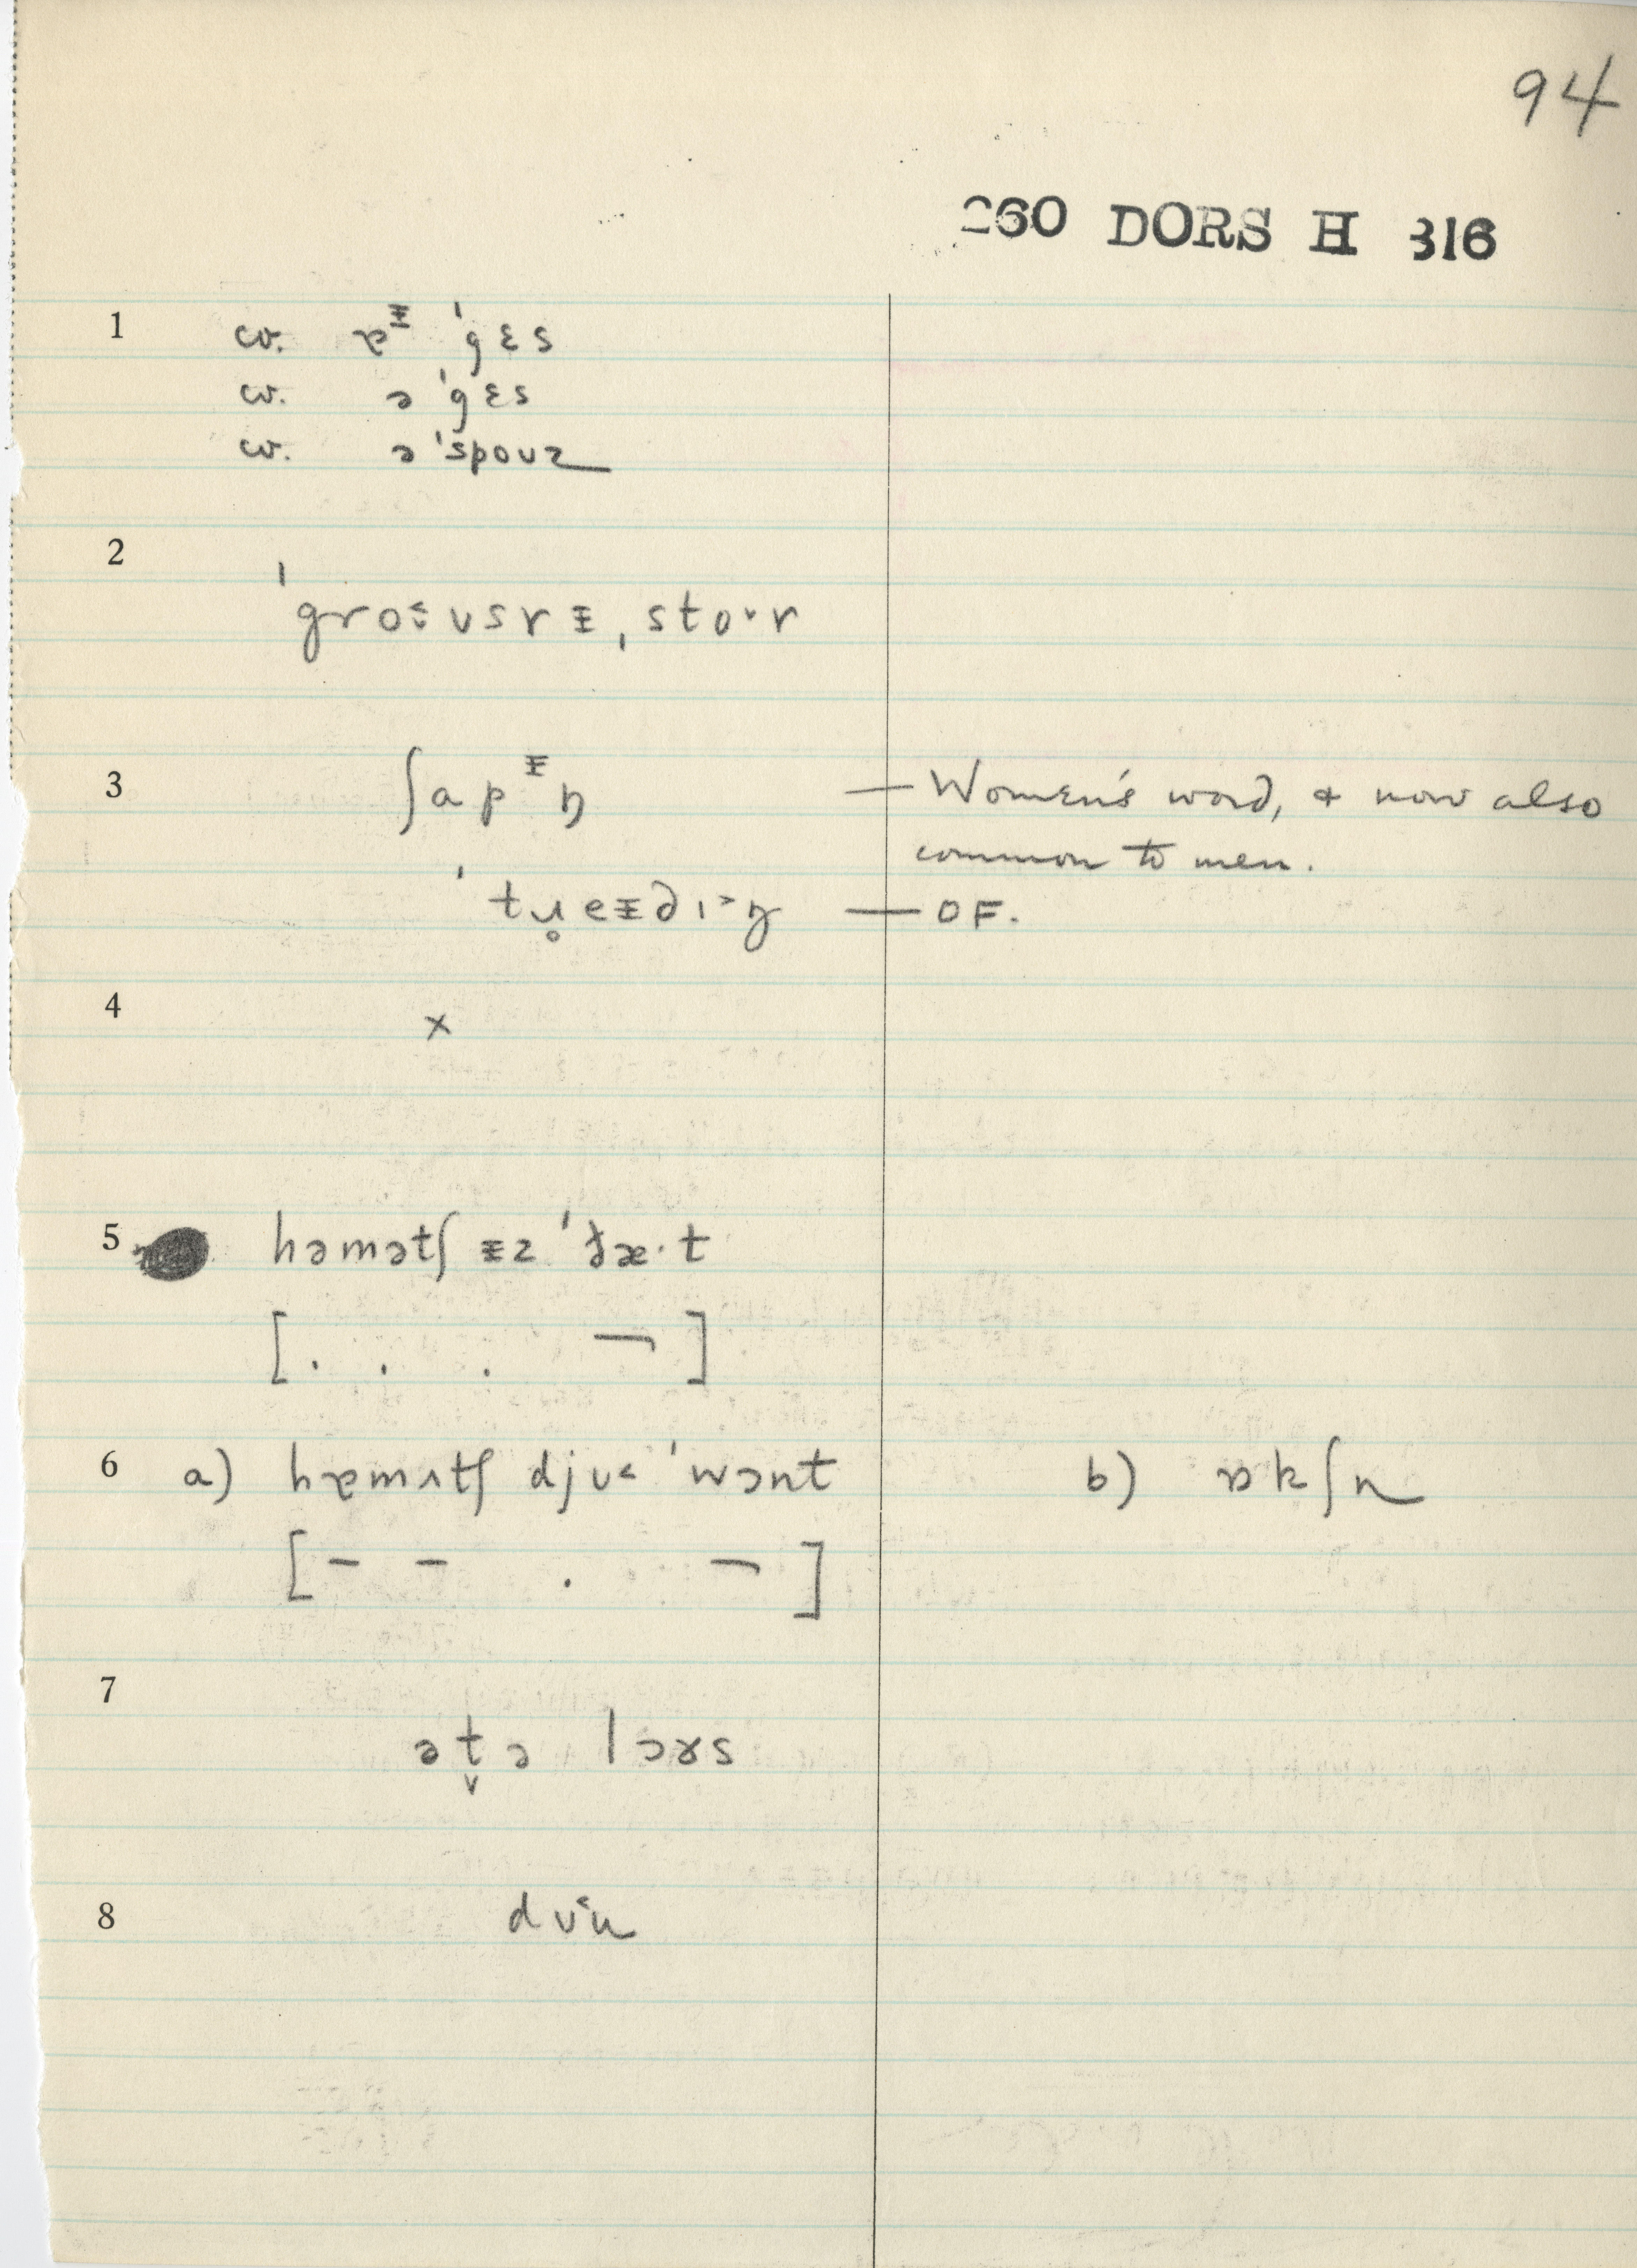 94
260 DORS H 316
1 cv. ɐᵻ ˈgɛs
cv. ə ˈgɛs
cv. ə ˈspouz
2 ˈgro˂ʊsrᵻˌstoˑr
3 ʃapᵻŋ — Women's word, & now also
common to men.
ˈtɹ̥eᵻdɪ˃ŋ — OF.
4 x
5 həmətʃ ᵻz ˈðæ·t
[. . . ¬]
6 a) hɐmʌtʃ djʊ˂ ˈwɔnt b) ɒkʃn
[– – . ¬]
7 ət̬ə lɔɤs
8 dʊ˂n